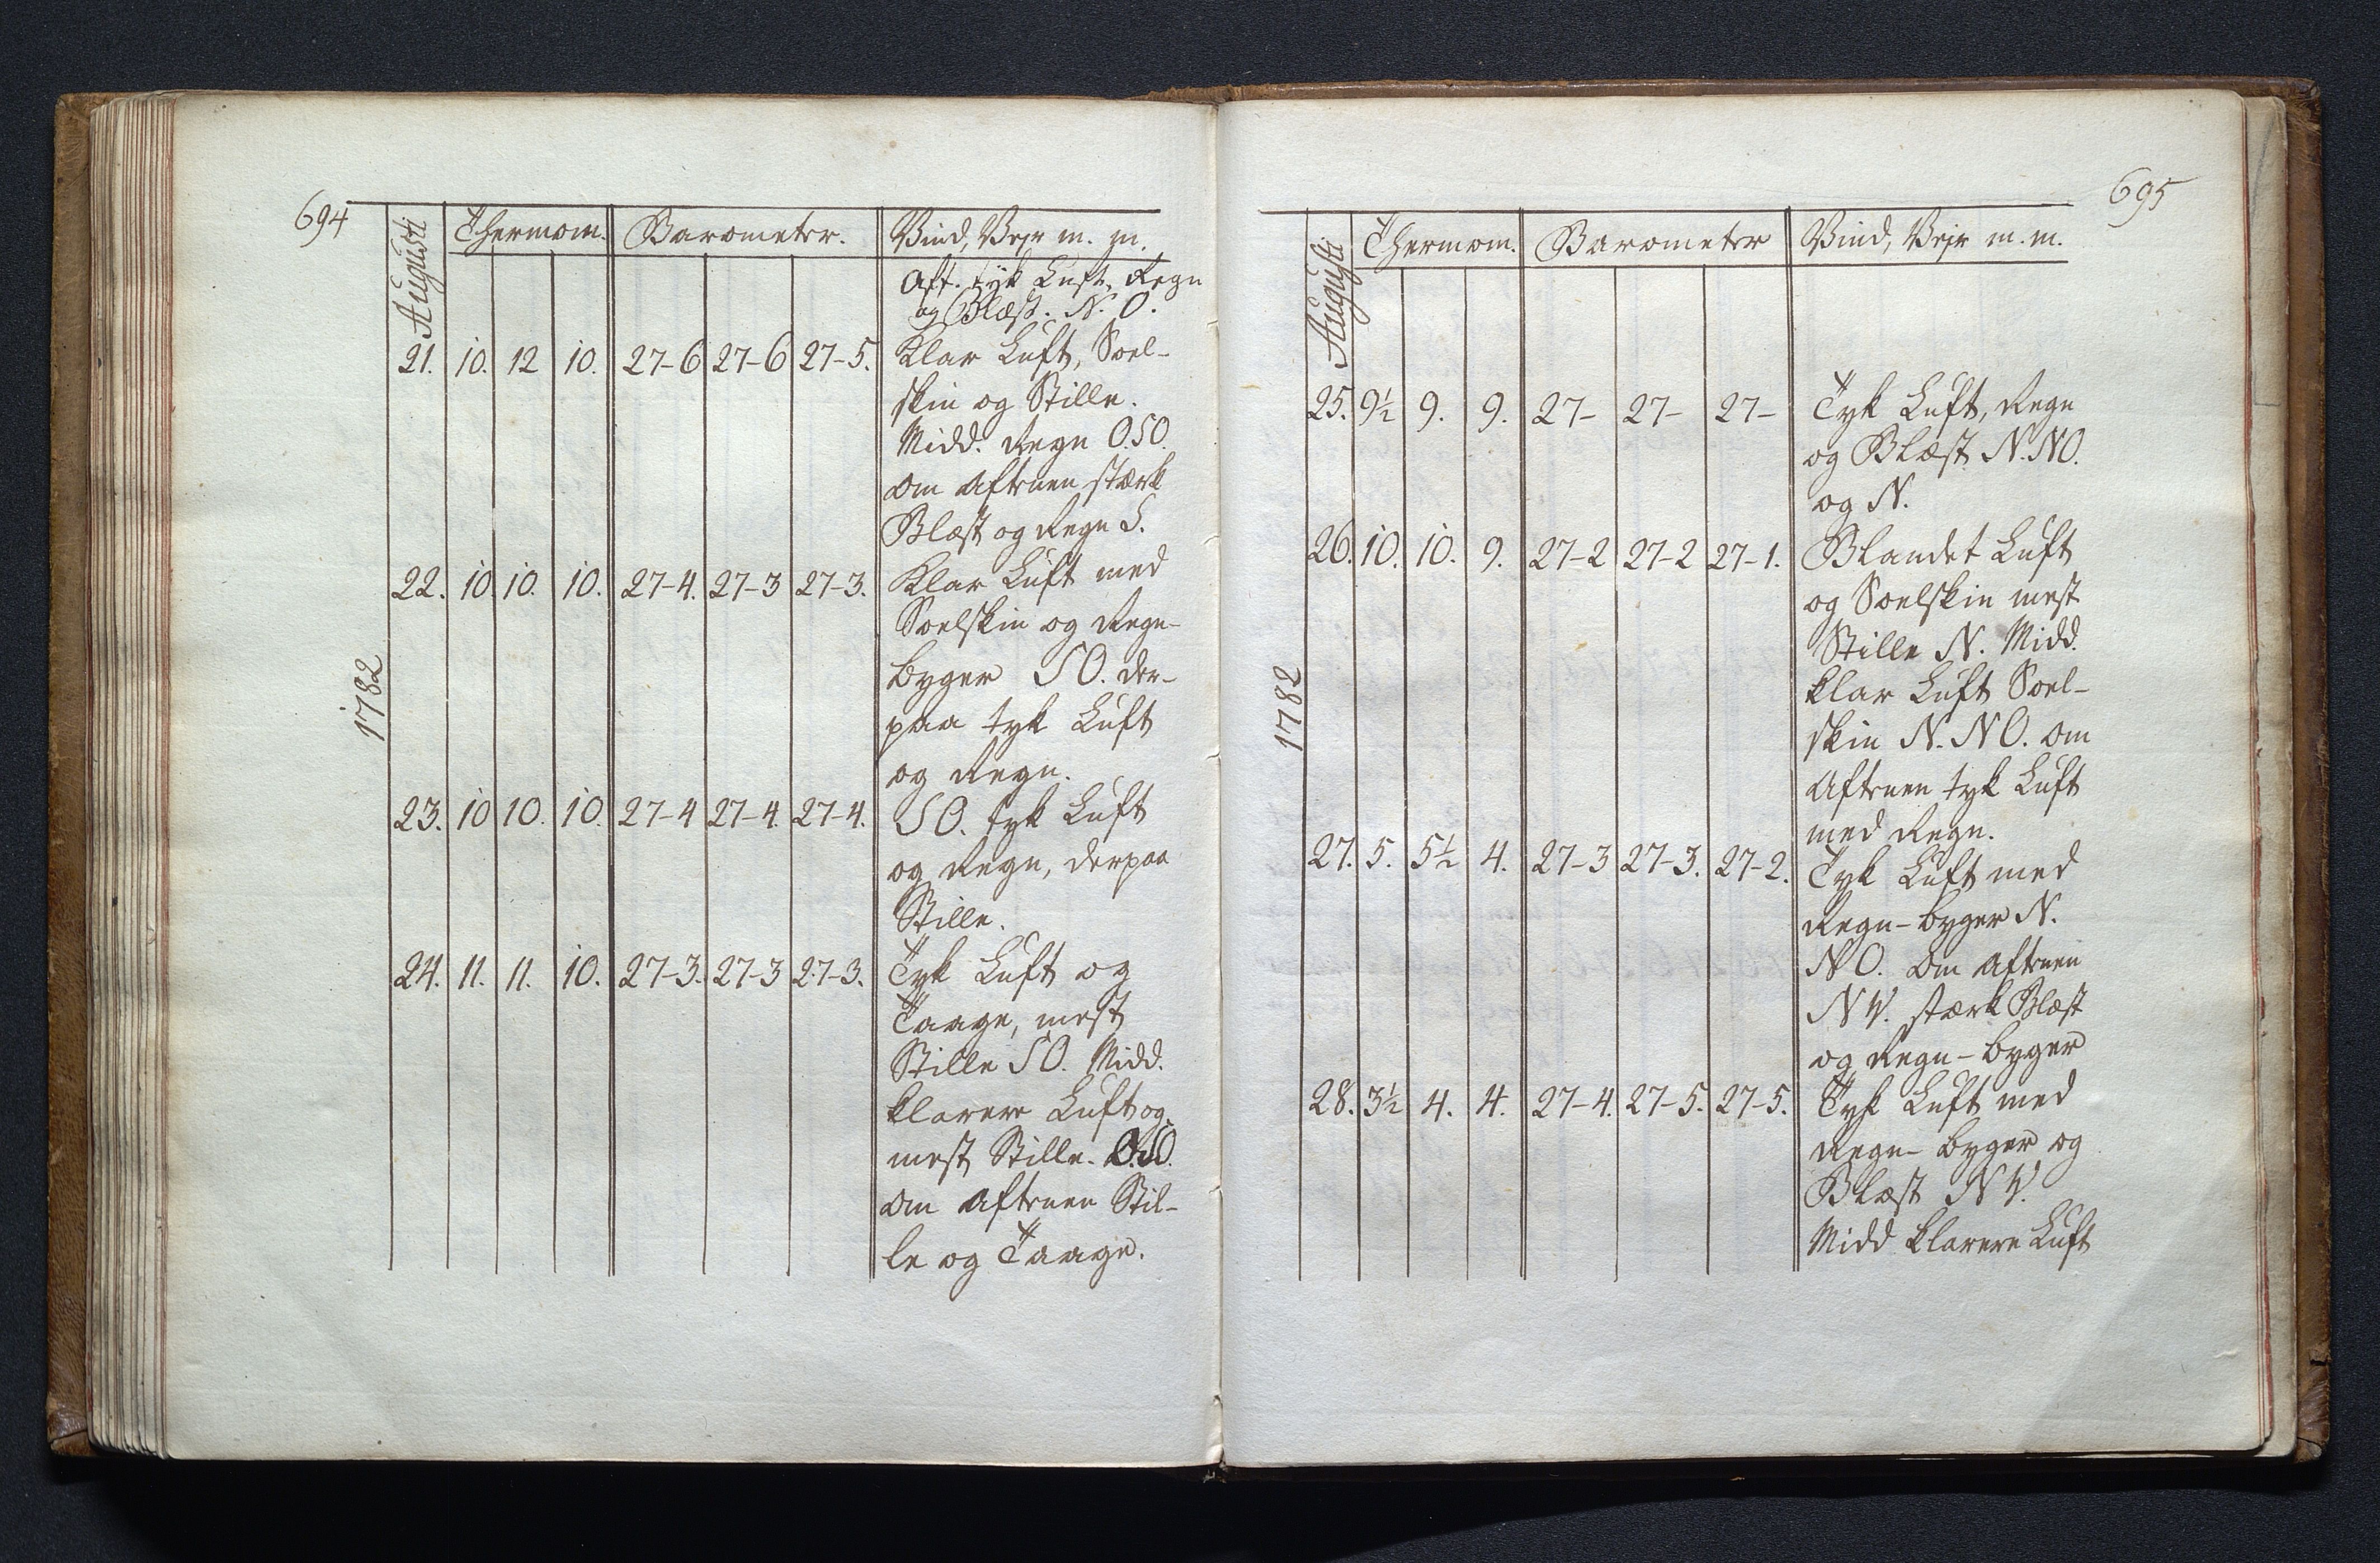 694
Augusti
Thermom. Barometer. Vind, Vejr m. m.
Aft. tyk Luft, Regn
og Blæst. N. O.
21. 10. 12 10. 27-6 27-6 27-5. Klar Luft, Soel-
skin og Stille.
Midd. Regn O.SO.
om Aftenen stærk
Blæst og Regn S.
22. 10. 10. 10. 27-4. 27-3 27-3. Klar Luft med
Soelskin og Regn-
byger SO. der-
paa tyk Luft
og Regn.
23. 10 10. 10. 27-4 27-4. 27-4. SO. tyk Luft
og Regn, derpaa
Stille.
24. 11. 11. 10. 27-3. 27-3 27-3. Tyk Luft og
Taage, mest
Stille SO. Midd.
klarere Luft og
mest Stille. O.SO.
om Aftenen Stil-
le og Taage.
1782
695
Augusti
Thermom. Barometer Vind, Vejr m. m.
25. 9½ 9. 9. 27- 27- 27- Tyk Luft, Regn
og Blæst N.NO.
og N.
26. 10. 10. 9. 27-2 27-2 27-1. Blandet Luft
og Soelskin mest
Stille N. Midd.
klar Luft Soel-
skin N.NO. om
Aftenen tyk Luft
med Regn.
27. 5. 5½ 4. 27-3 27-3. 27-2. Tyk Luft med
Regn-byger N.
NO. om Aftenen
NV. stærk Blæst
og Regn-byger
28. 3½ 4. 4. 27-4. 27-5. 27-5. Tyk Luft med
Regn-byger og
Blæst NV.
Midd klarere Luft
1782